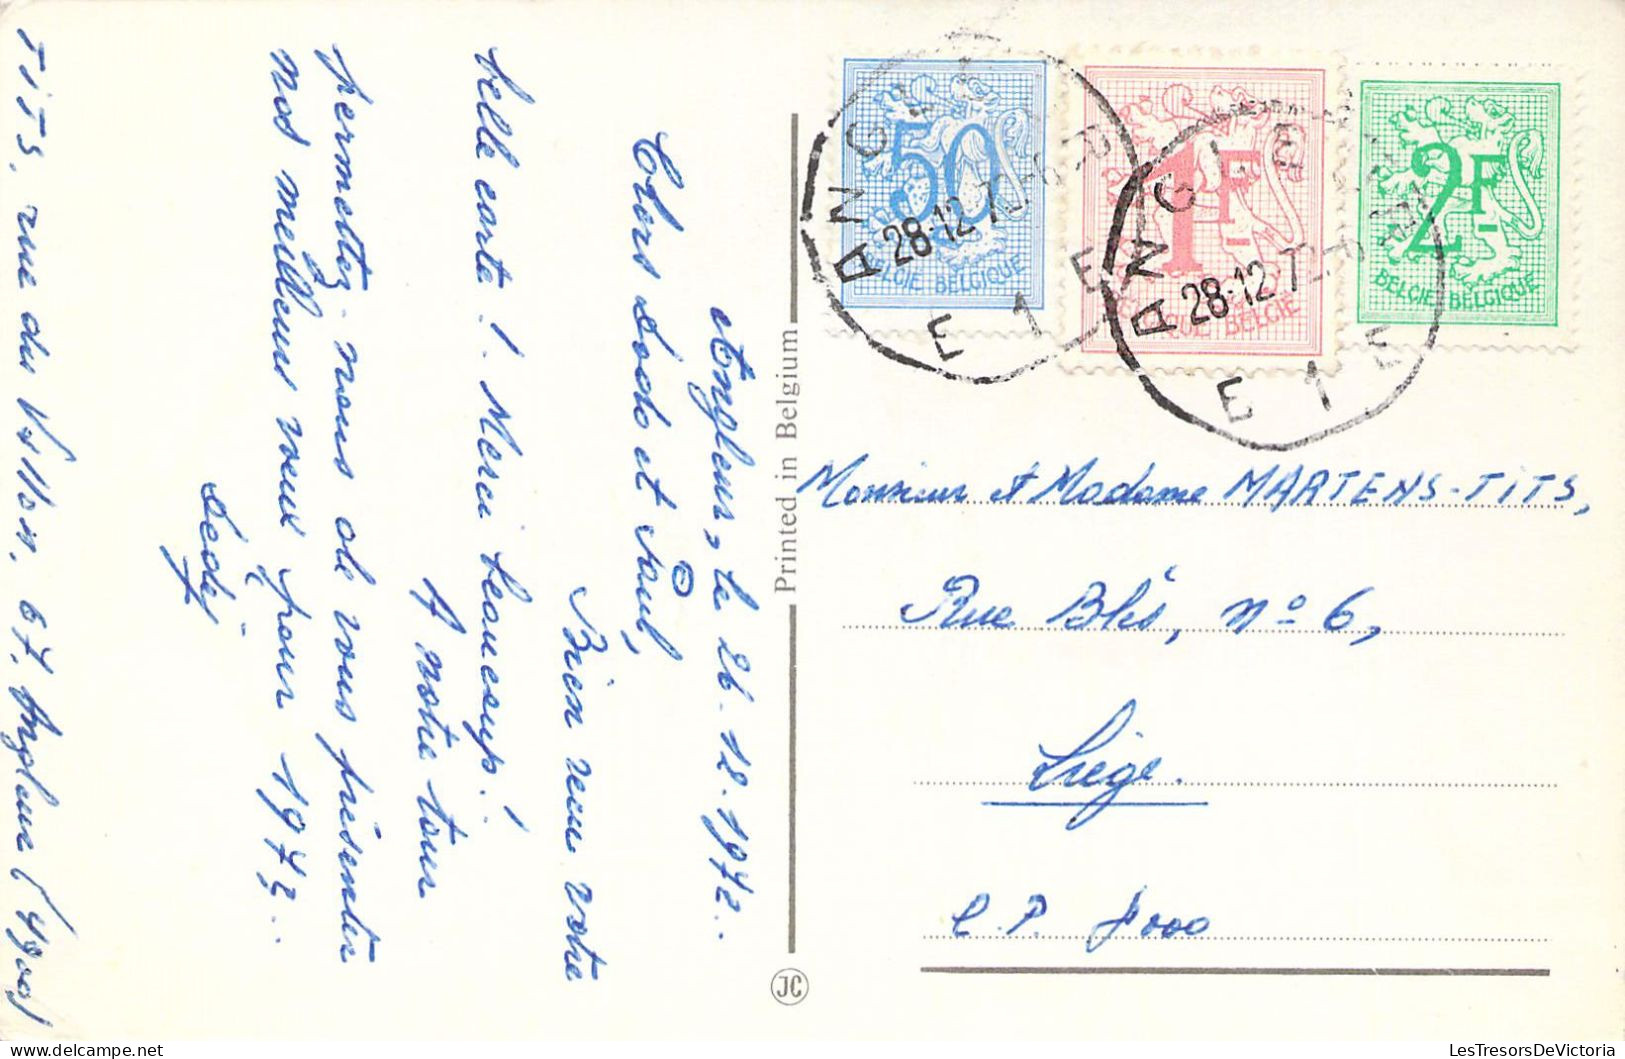 Angleur, le 26.12.1972.
Chers Dodo et Paul,
Bien reçu votre
belle carte! Merci beaucoup!
A notre tour
permettez-nous de vous présenter
nos meilleurs vœux pour 1973.
TiTS, rue du Vallon, 67, Angleur (4900)
Printed in Belgium
JC
50
BELGIE BELGIQUE
1F
BELGIE
2F
BELGIE BELGIQUE
ANGLEUR
28-12-72
E 1 E
ANGLEUR
28-12-72
E 1 E
Monsieur et Madame MARTENS-TiTS,
Rue Blés, nº 6,
Liège.
C.P. 4000
LesTresorsDeVictoria